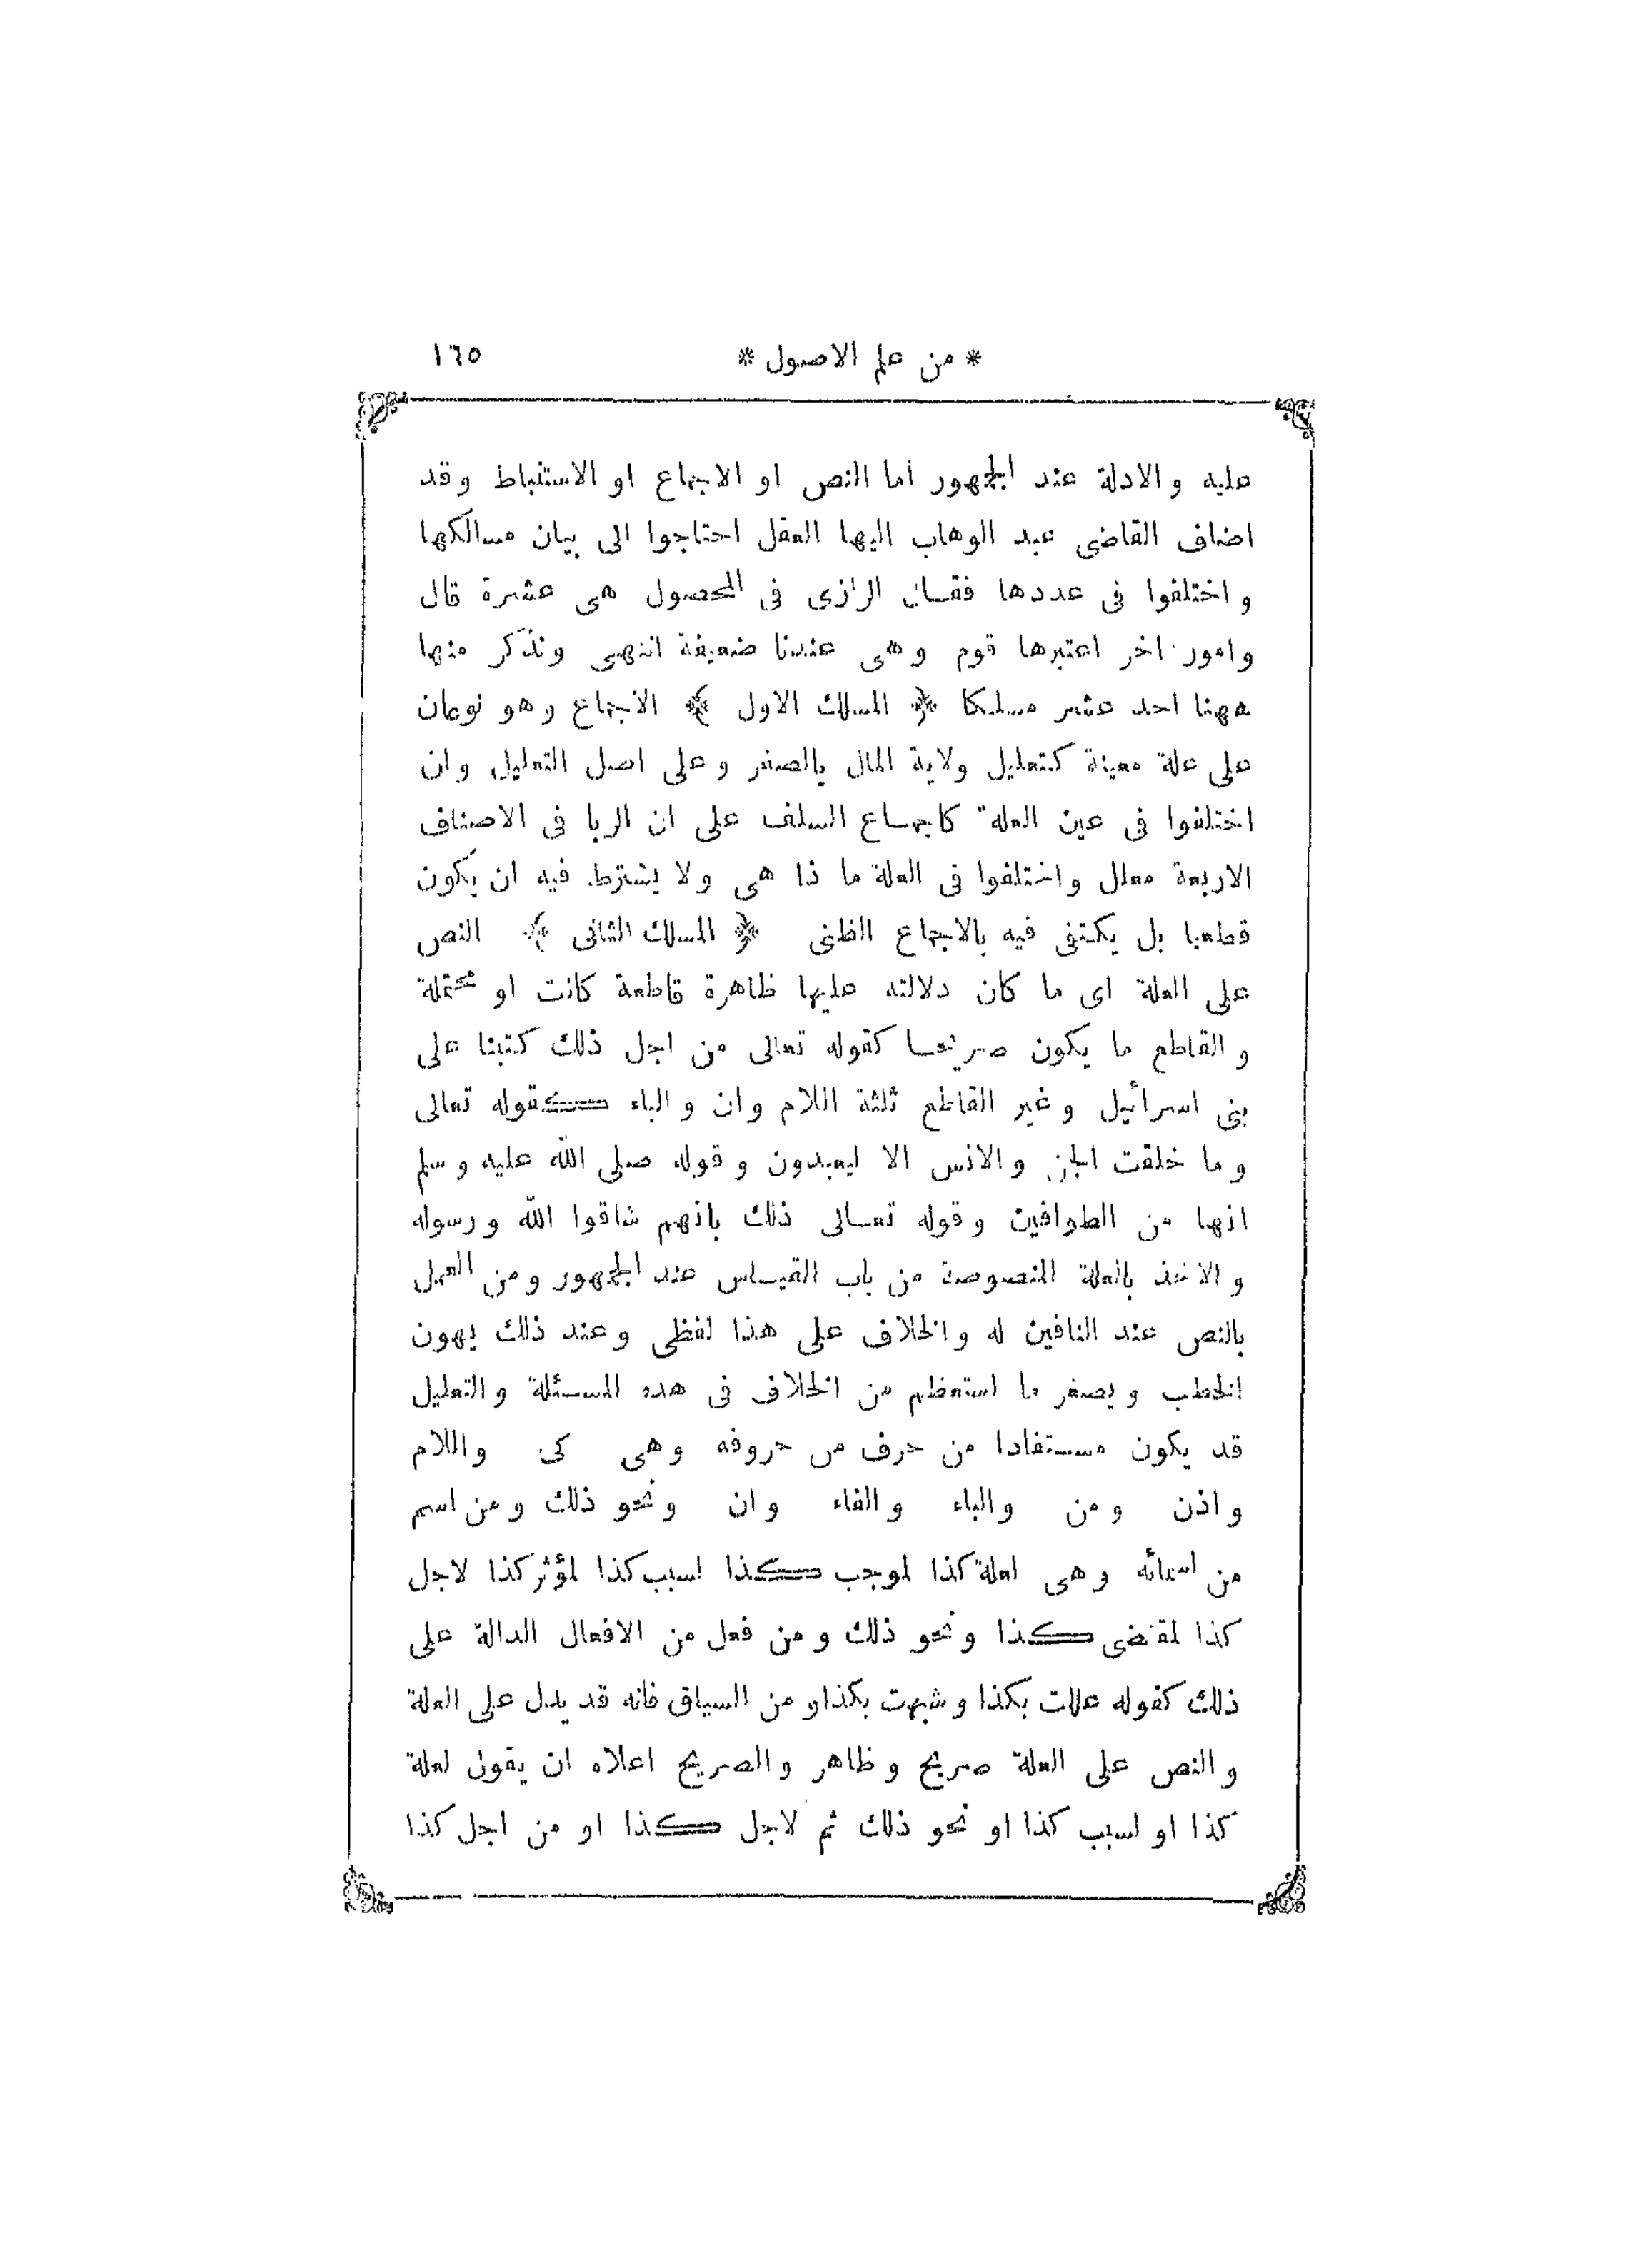 * من علم الاصول * ١٦٥
عليه والادلة عند الجمهور اما النص او الاجماع او الاستنباط وقد
اضاف القاضى عبد الوهاب اليها العقل احتاجوا الى بيان مسالكها
واختلفوا فى عددها فقال الرازى فى المحصول هى عشرة قال
وامور اخر اعتبرها قوم وهى عندنا ضعيفة انتهى ونذكر منها
ههنا احد عشر مسلكا ﴿ المسلك الاول ﴾ الاجماع وهو نوعان
على علة معينة كتعليل ولاية المال بالصغر وعلى اصل التعليل وان
اختلفوا فى عين العلة كاجماع السلف على ان الربا فى الاصناف
الاربعة معلل واختلفوا فى العلة ما ذا هى ولا يشترط فيه ان يكون
قطعيا بل يكتفى فيه بالاجماع الظنى ﴿ المسلك الثانى ﴾ النص
على العلة اى ما كان دلالته عليها ظاهرة قاطعة كانت او محتملة
والقاطع ما يكون صريحا كقوله تعالى من اجل ذلك كتبنا على
بنى اسرائيل وغير القاطع ثلثة اللام وان والباء كقوله تعالى
وما خلقت الجن والانس الا ليعبدون وقوله صلى الله عليه وسلم
انها من الطوافين وقوله تعالى ذلك بانهم شاقوا الله ورسوله
والاخذ بالعلة المنصوصة من باب القياس عند الجمهور ومن العمل
بالنص عند النافين له والخلاف على هذا لفظى وعند ذلك يهون
الخطب ويصغر ما استعظم من الخلاف فى هذه المسئلة والتعليل
قد يكون مستفادا من حرف من حروفه وهى كى واللام
واذن ومن والباء والفاء وان ونحو ذلك ومن اسم
من اسمائه وهى لعلة كذا لموجب كذا لسبب كذا لمؤثر كذا لاجل
كذا لمقتضى كذا ونحو ذلك ومن فعل من الافعال الدالة على
ذلك كقوله عللت بكذا وشبهت بكذا ومن السياق فانه قد يدل على العلة
والنص على العلة صريح وظاهر والصريح اعلاه ان يقول لعلة
كذا او لسبب كذا او نحو ذلك ثم لاجل كذا او من اجل كذا